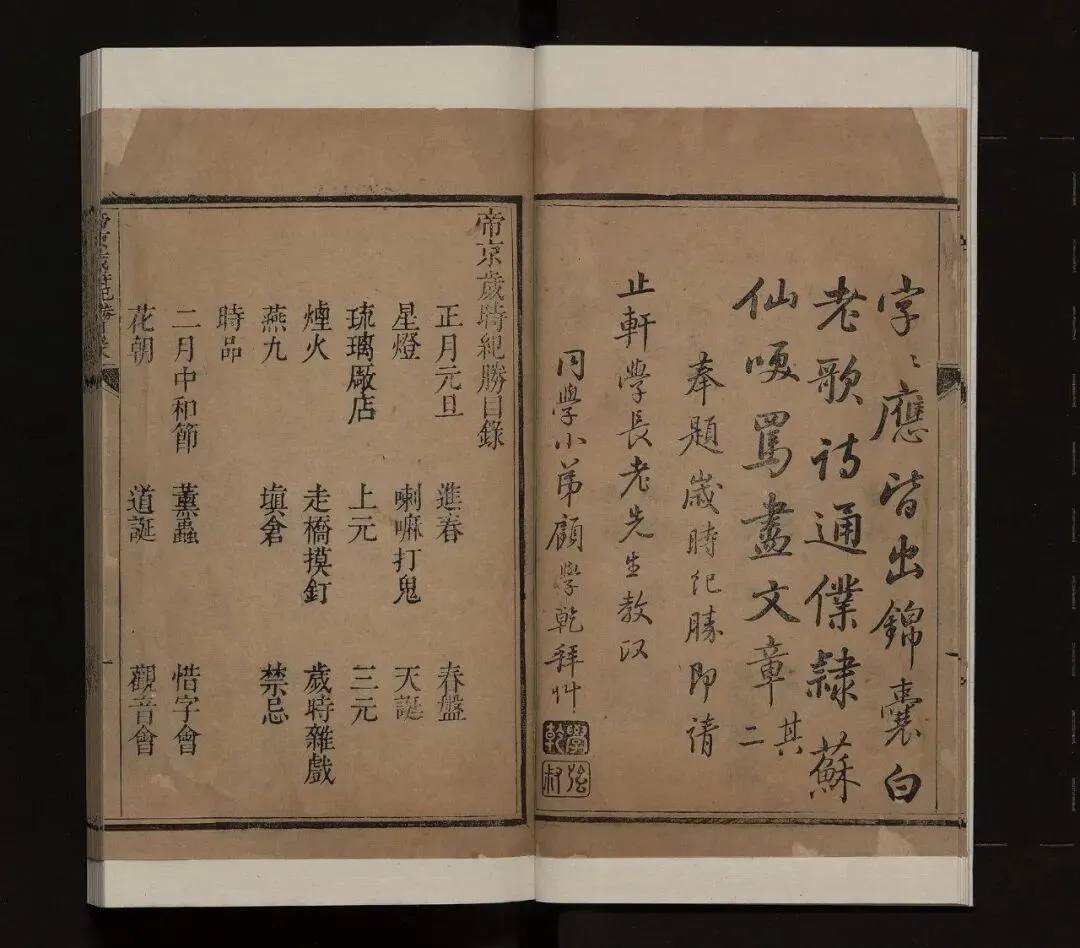 字〻應皆出錦囊白
老歌詩通僕隸蘇
仙咲罵盡文章 其二
奉題歲時紀勝即請
止軒學長老先生教政
同學小弟顧學乾拜艸
學乾
帝京歲時紀勝目錄
正月元旦 進春 春盤
星燈 喇嘛打鬼 天誕
琉璃厰店 上元 三元
煙火 走橋摸釘 歲時雜戲
燕九 塡倉 禁忌
時品
二月中和節 薰蟲 惜字會
花朝 道誕 觀音會